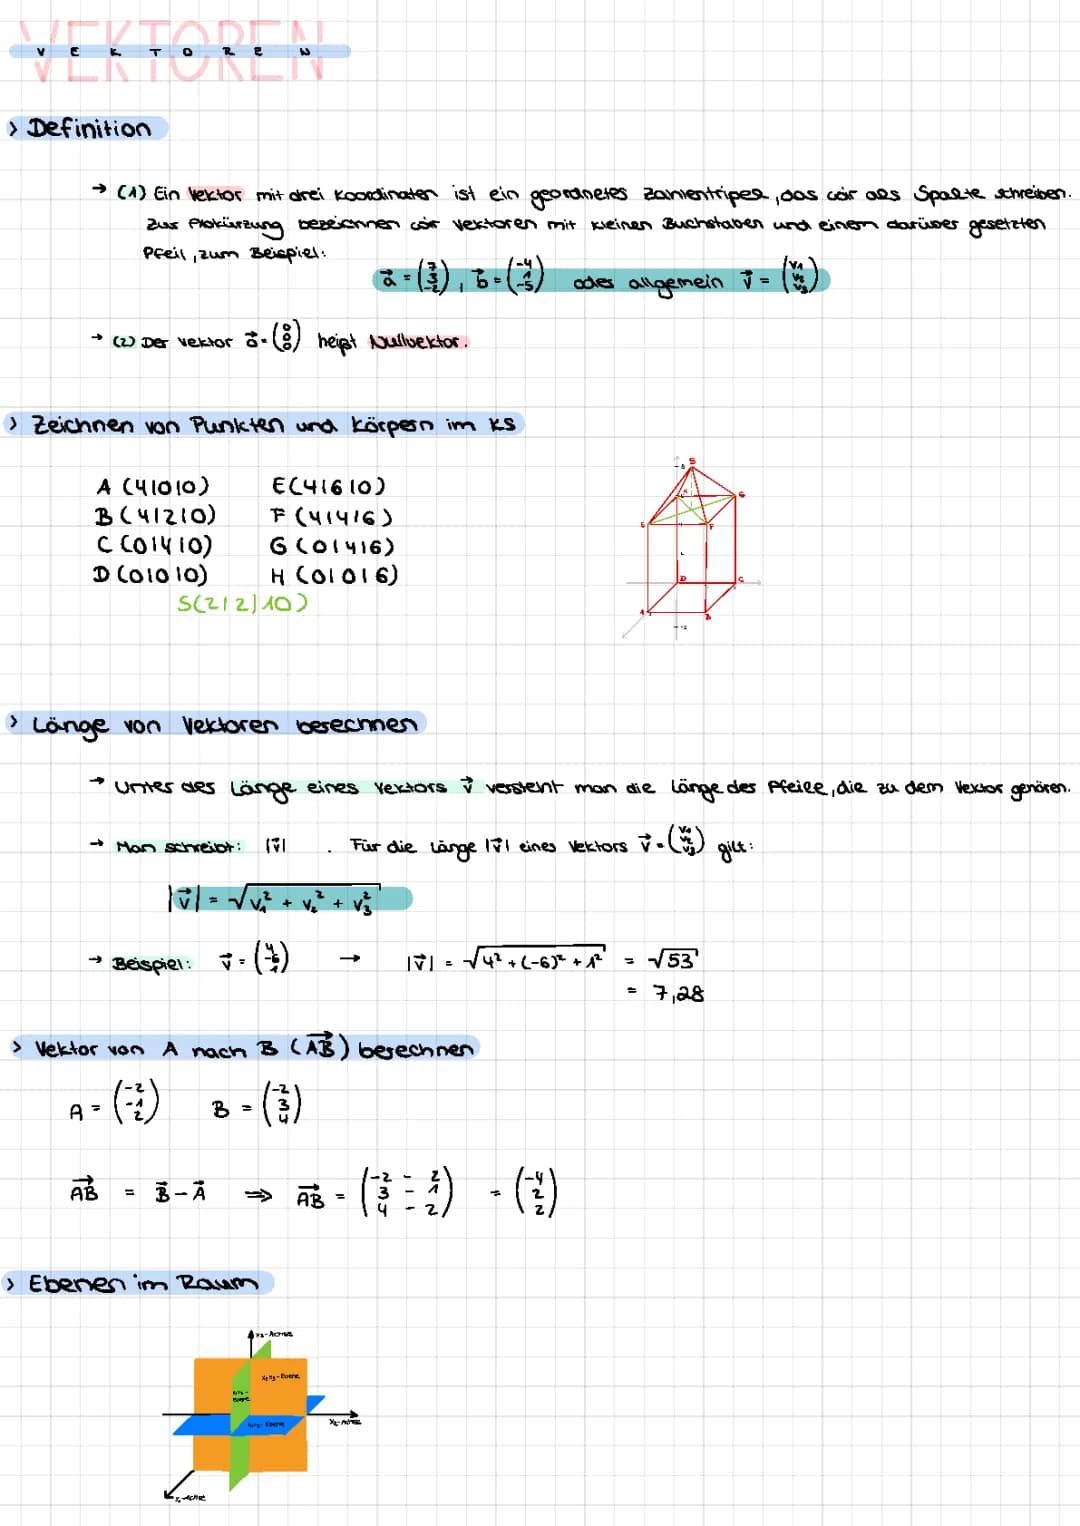 VEKTOREN
VEKTOREN
> Definition
→ (1) Ein Vektor mit drei Koordinaten ist ein geordnetes Zahlentripel, das wir als Spalte schreiben.
Zur Abkürzung bezeichnen wir Vektoren mit kleinen Buchstaben und einem darüber gesetzten
Pfeil, zum Beispiel:
a⃗ = (7 3 -2), b⃗ = (-4 1 -5) oder allgemein v⃗ = (v₁ v₂ v₃)
→ (2) Der Vektor o⃗ = (0 0 0) heißt Nullvektor.
> Zeichnen von Punkten und Körpern im KS
A (4|0|0) E(4|6|0)
B (4|2|0) F (4|4|6)
C (0|4|0) G (0|4|6)
D (0|0|0) H (0|0|6)
S(2|2|10)
S
G
E F
D C
A B
> Länge von Vektoren berechnen
→ Unter der Länge eines Vektors v⃗ versteht man die Länge der Pfeile, die zu dem Vektor gehören.
→ Man schreibt: |v⃗| . Für die Länge |v⃗| eines Vektors v⃗ = (v₁ v₂ v₃) gilt:
|v⃗| = √v₁² + v₂² + v₃²
→ Beispiel: v⃗ = (4 -6 1) → |v⃗| = √4² + (-6)² + 1² = √53
= 7,28
> Vektor von A nach B (AB⃗) berechnen
A = (-2 -1 2) B = (-2 3 4)
AB⃗ = B⃗ - A⃗ ⇒ AB⃗ = (-2 - 2 3 - 1 4 - 2) = (-4 2 2)
> Ebenen im Raum
x₃-Achse
x₂x₃-Ebene
x₁x₃-Ebene
x₁x₂-Ebene
x₂-Achse
x₁-Achse